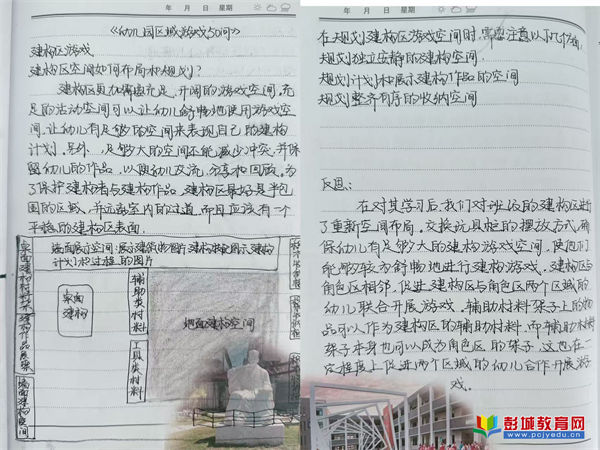 年 月 日
《幼儿园区域游戏50问》
建构区游戏
建构区空间如何布局和规划？
建构区具
充足，开阔的游戏空间，充
足的活动空间可以让幼儿舒畅地使用游戏空
间，让幼儿有足够的空间来表现自己的建构
计划。另外，足够大的空间还能减少冲突，并保
留幼儿的作品，以便幼儿交流、分享和回顾。为
了保护建构者与建构作品，建构区最好是半包
围的区域，并远离室内的过道，而且应该有一个
平稳的建构区表面。
墙面展示空间：展示建筑物图片
建构
计划和过程的图片
桌面建构
辅助类材料
工具类材料
地面建构空间
年 月 日
在规划建构区游戏空间时，需要注意以下几个方面
规划独立安静的建构空间
规划计划和展示建构作品的空间
规划整齐有序的收纳空间
反思：
在对其学习后，我们对班级的建构区进行
了重新空间布局。交换玩具柜的摆放方式，确
保幼儿有足够大的建构游戏空间，使他们
能够较为舒畅地进行建构游戏。建构区与
角色区相邻，促进建构区与角色区两个区域的
幼儿联合开展游戏。辅助材料架子上的物
品可以作为建构区的辅助材料，而辅助材料
架子本身也可以成为角色区的架子，这也在一
定程度上促进两个区域的幼儿合作开展游
戏。
彭城教育网
www.pcjyedu.com